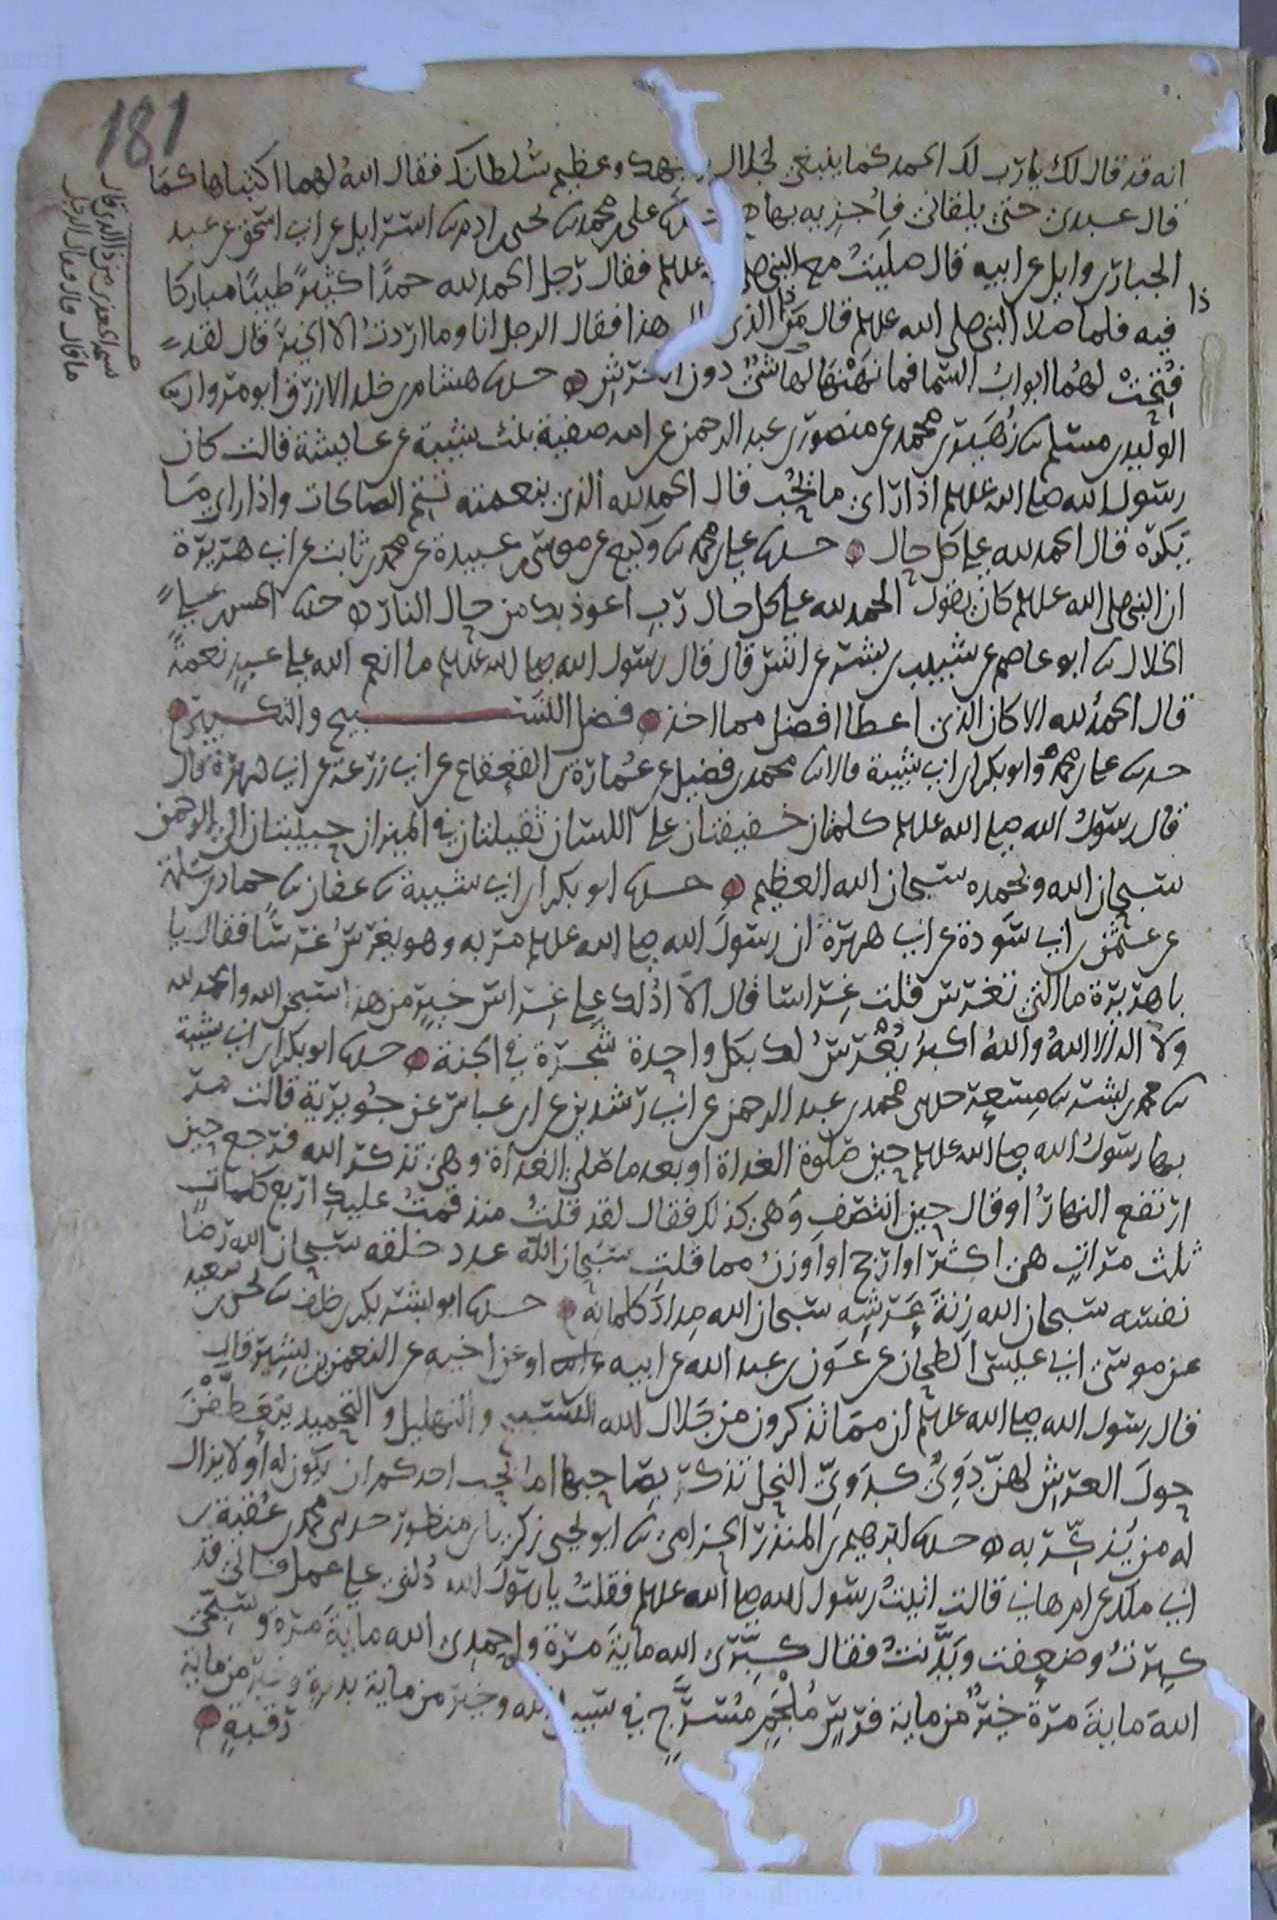 181
انه قد قال لك يا رب لك الحمد كما ينبغي لجلال وجهك وعظيم سلطانك فقال الله لهما اكتباها كما
قال عبدي حتى يلقاني فاجزيه بها علي بن محمد نا يحيى بن ادم نا اسرايل عن ابي اسحق عن عبد
الجبار بن وايل عن ابيه قال صليت مع النبي صلى عليه وسلم فقال رجل الحمد لله حمدا كثيرا طيبا مباركا
فيه فلما صلا النبي صلى الله عليه وسلم قال من ذا الذي هذا فقال الرجل انا وما اردت الا الخير قال لقد
فتحت لهما ابواب السما فما نهنهها شي دون العرش حدثنا هشام بن خلد الازرق ابو مروان نا
الوليد بن مسلم نا زهير بن محمد عن منصور بن عبد الرحمن عن امه صفية بنت شيبة عن عايشة قالت كان
رسول الله صلى الله عليه وسلم اذا راى ما يحب قال الحمد لله الذي بنعمته تتم الصالحات واذا راى ما
يكره قال الحمد لله على كل حال حدثنا علي بن محمد نا وكيع عن موسى بن عبيدة عن محمد بن ثابت عن ابي هريرة
ان النبي صلى الله عليه وسلم كان يقول الحمد لله على كل حال رب اعوذ بك من حال النار حدثنا الحسن بن علي
الخلال نا ابو عاصم عن شبيب بن بشر عن انس قال قال رسول الله صلى الله عليه وسلم ما انعم الله على عبد نعمة
قال الحمد لله الا كان الذي اعطا افضل مما اخذ فضل التسبيح والتكبير
حدثنا علي بن محمد وابو بكر بن ابي شيبة قالا نا محمد بن فضيل عن عمارة بن القعقاع عن ابي زرعة عن ابي هريرة قال
قال رسول الله صلى الله عليه وسلم كلمتان خفيفتان على اللسان ثقيلتان في الميزان حبيبتان الى الرحمن
سبحان الله وبحمده سبحان الله العظيم حدثنا ابو بكر بن ابي شيبة نا عفان نا حماد بن سلمة
عن عثمن بن ابي سودة عن ابي هريرة ان رسول الله صلى الله عليه وسلم مر به وهو يغرس غرسا فقال يا
با هريرة ما الذي تغرس قلت غراسا قال الا ادلك على غراس خير من هذا سبحن الله والحمد لله
ولا اله الا الله والله اكبر يغرس لك بكل واحدة شجرة في الجنة حدثنا ابو بكر بن ابي شيبة
نا محمد بن بشر نا مسعر حدثني محمد بن عبد الرحمن عن ابي رشدين عن ابن عباس عن جويرية قالت مر
بها رسول الله صلى الله عليه وسلم حين صلوة الغداة او بعد ما صلى الغداة وهي تذكر الله فرجع حين
ارتفع النهار او قال حين انتصف وهي كذلك فقال لقد قلت منذ قمت عليك اربع كلمات
ثلث مرات هن اكثر او ارجح او اوزن مما قلت سبحان الله عدد خلقه سبحان الله رضا
نفسه سبحان الله زنة عرشه سبحان الله مداد كلماته حدثنا ابو بشر بكر بن خلف نا يحيى بن سعيد
عن موسى ابي عيسى الطحان عن عون بن عبد الله عن ابيه او عن اخيه عن النعمن بن بشير قال
قال رسول الله صلى الله عليه وسلم ان مما تذكرون من جلال الله التسبيح والتهليل والتحميد يتعطفن
حول العرش لهن دوي كدوي النحل تذكر بصاحبها اما يحب احدكم ان يكون له او لا يزال
له من يذكر به حدثنا ابرهيم بن المنذر الحزامي نا ابو يحيى زكريا بن منظور حدثني محمد بن عقبة بن
ابي ملك عن ام هاني قالت اتيت رسول الله صلى الله عليه وسلم فقلت يا رسول الله دلني على عمل فاني قد
كبرت وضعفت وبدنت فقال كبري الله ماية مرة واحمدي الله ماية مرة وسبحي
الله ماية مرة خير من ماية فرس ملجم مسرج في سبيل الله وخير من ماية بدنة وخير من ماية
رقبة
ذا